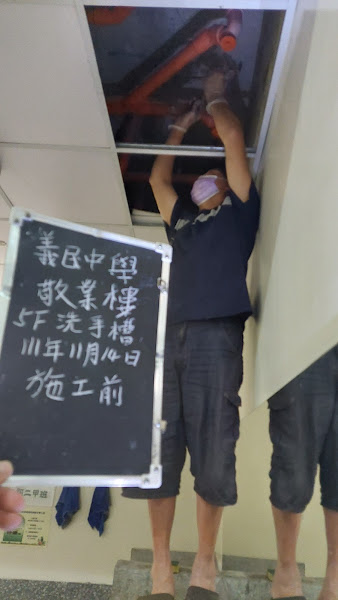 義民中學
敬業樓
5F洗手槽
111年11月14日
施工前
二甲班